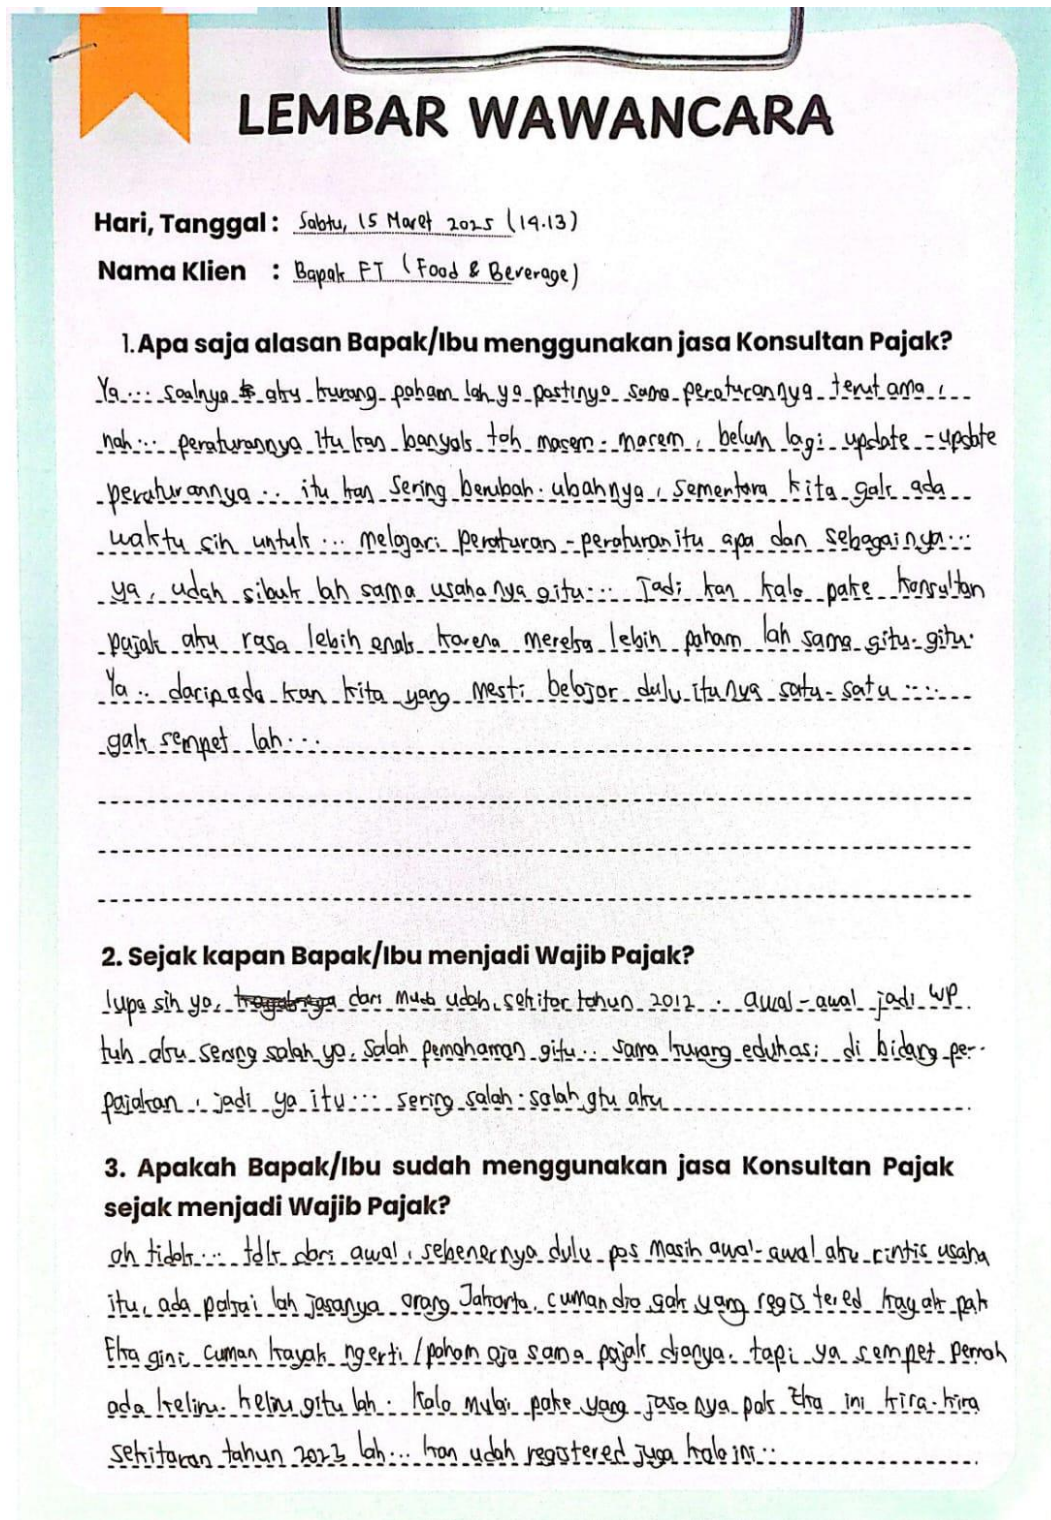 LEMBAR WAWANCARA
Hari, Tanggal : Sabtu, 15 Maret 2025 (19.13)
Nama Klien : Bapak FT (Food & Beverage)
1. Apa saja alasan Bapak/Ibu menggunakan jasa Konsultan Pajak?
Ya... soalnya aku kurang paham lah ya pastinya sama peraturannya terutama,
nah... peraturannya itu kan banyak toh macem-macem, belum lagi update-update
peraturannya... itu kan sering berubah-ubahnya, sementara kita gak ada
waktu sih untuk... melajari peraturan-peraturan itu apa dan sebagainya...
ya, udah sibuk lah sama usahanya gitu... Jadi kan kalo pake konsultan
pajak aku rasa lebih enak karena mereka lebih paham lah sama gitu-gitu.
Ya.. daripada kan kita yang mesti belajar dulu itunya satu-satu....
gak sempet lah...
2. Sejak kapan Bapak/Ibu menjadi Wajib Pajak?
lupa sih ya, dari udah, sekitar tahun 2012.. awal-awal jadi WP
tuh aku sering salah ya, salah pemahaman gitu.. sama kurang edukasi di bidang per-
pajakan, jadi ya itu... sering salah-salah gtu aku
3. Apakah Bapak/Ibu sudah menggunakan jasa Konsultan Pajak
sejak menjadi Wajib Pajak?
oh tidak... tdk dari awal, sebenernya dulu pas masih awal-awal aku rintis usaha
itu, ada pakai lah jasanya orang Jakarta, cuman dia gak yang registered kayak pak
Eka gini, cuman kayak ngerti/paham aja sama pajak dianya. tapi ya sempet pernah
ada keliru-keliru gitu lah. Kalo mulai pake yang jasanya pak Eka ini kira-kira
sekitaran tahun 2023 lah... kan udah registered juga kalo ini..